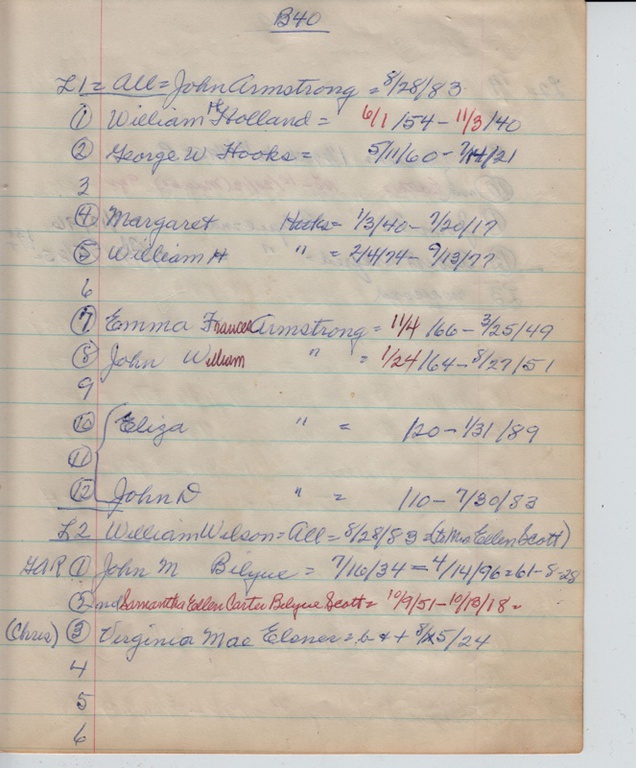 B40
L1 = All = John Armstrong = 8/28/83
① William McHolland = 6/1/54 - 11/3/40
② George W Hooks = 5/11/60 - 7/14/21
3
④ Margaret Hooks = 1/3/40 - 7/20/17
⑤ William H " = 2/4/74 - 9/13/77
6
⑦ Emma Frances Armstrong = 11/4/66 - 3/25/49
⑧ John William " = 1/24/64 - 8/27/51
9
⑩ Eliza " = /20 - 1/31/89
⑪
⑫ John D " = /10 - 7/30/83
L2 William Wilson = All = 8/28/83 = (to Mrs Ellen Scott)
GAR ① John M Belyue = 7/16/34 = 4/14/96 = 61-8-28
② nd Samantha Ellen Carter Belyue Scott = 10/9/51 - 10/13/18 =
(Chris) ③ Virginia Mae Elsner = b & + 8/25/24
4
5
6